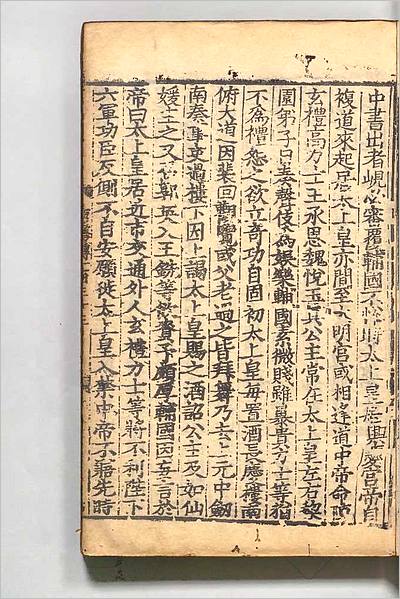 中書出者峴必審覆輔國不悅時太上皇居興慶宮帝自
複道來起居太上皇亦間至大明宮或相逢道中帝命陳
玄禮高力士王承恩魏悅玉真公主常在太上皇左右梨
園弟子日奏聲伎為娛樂輔國素微賤雖暴貴力士等猶
不為禮怨之欲立奇功自固初太上皇每置酒長慶樓南
俯大道因裴回觀覽或父老過之皆拜舞乃去上元中劒
南奏事吏過樓下因上謁太上皇賜之酒詔公主及如仙
媛主之又召郭英乂王等飲賚予頗厚輔國因妄言於
帝曰太上皇居近市交通外人玄禮力士等將不利陛下
六軍功臣反側不自安願徙太上皇入禁中帝不寤先時